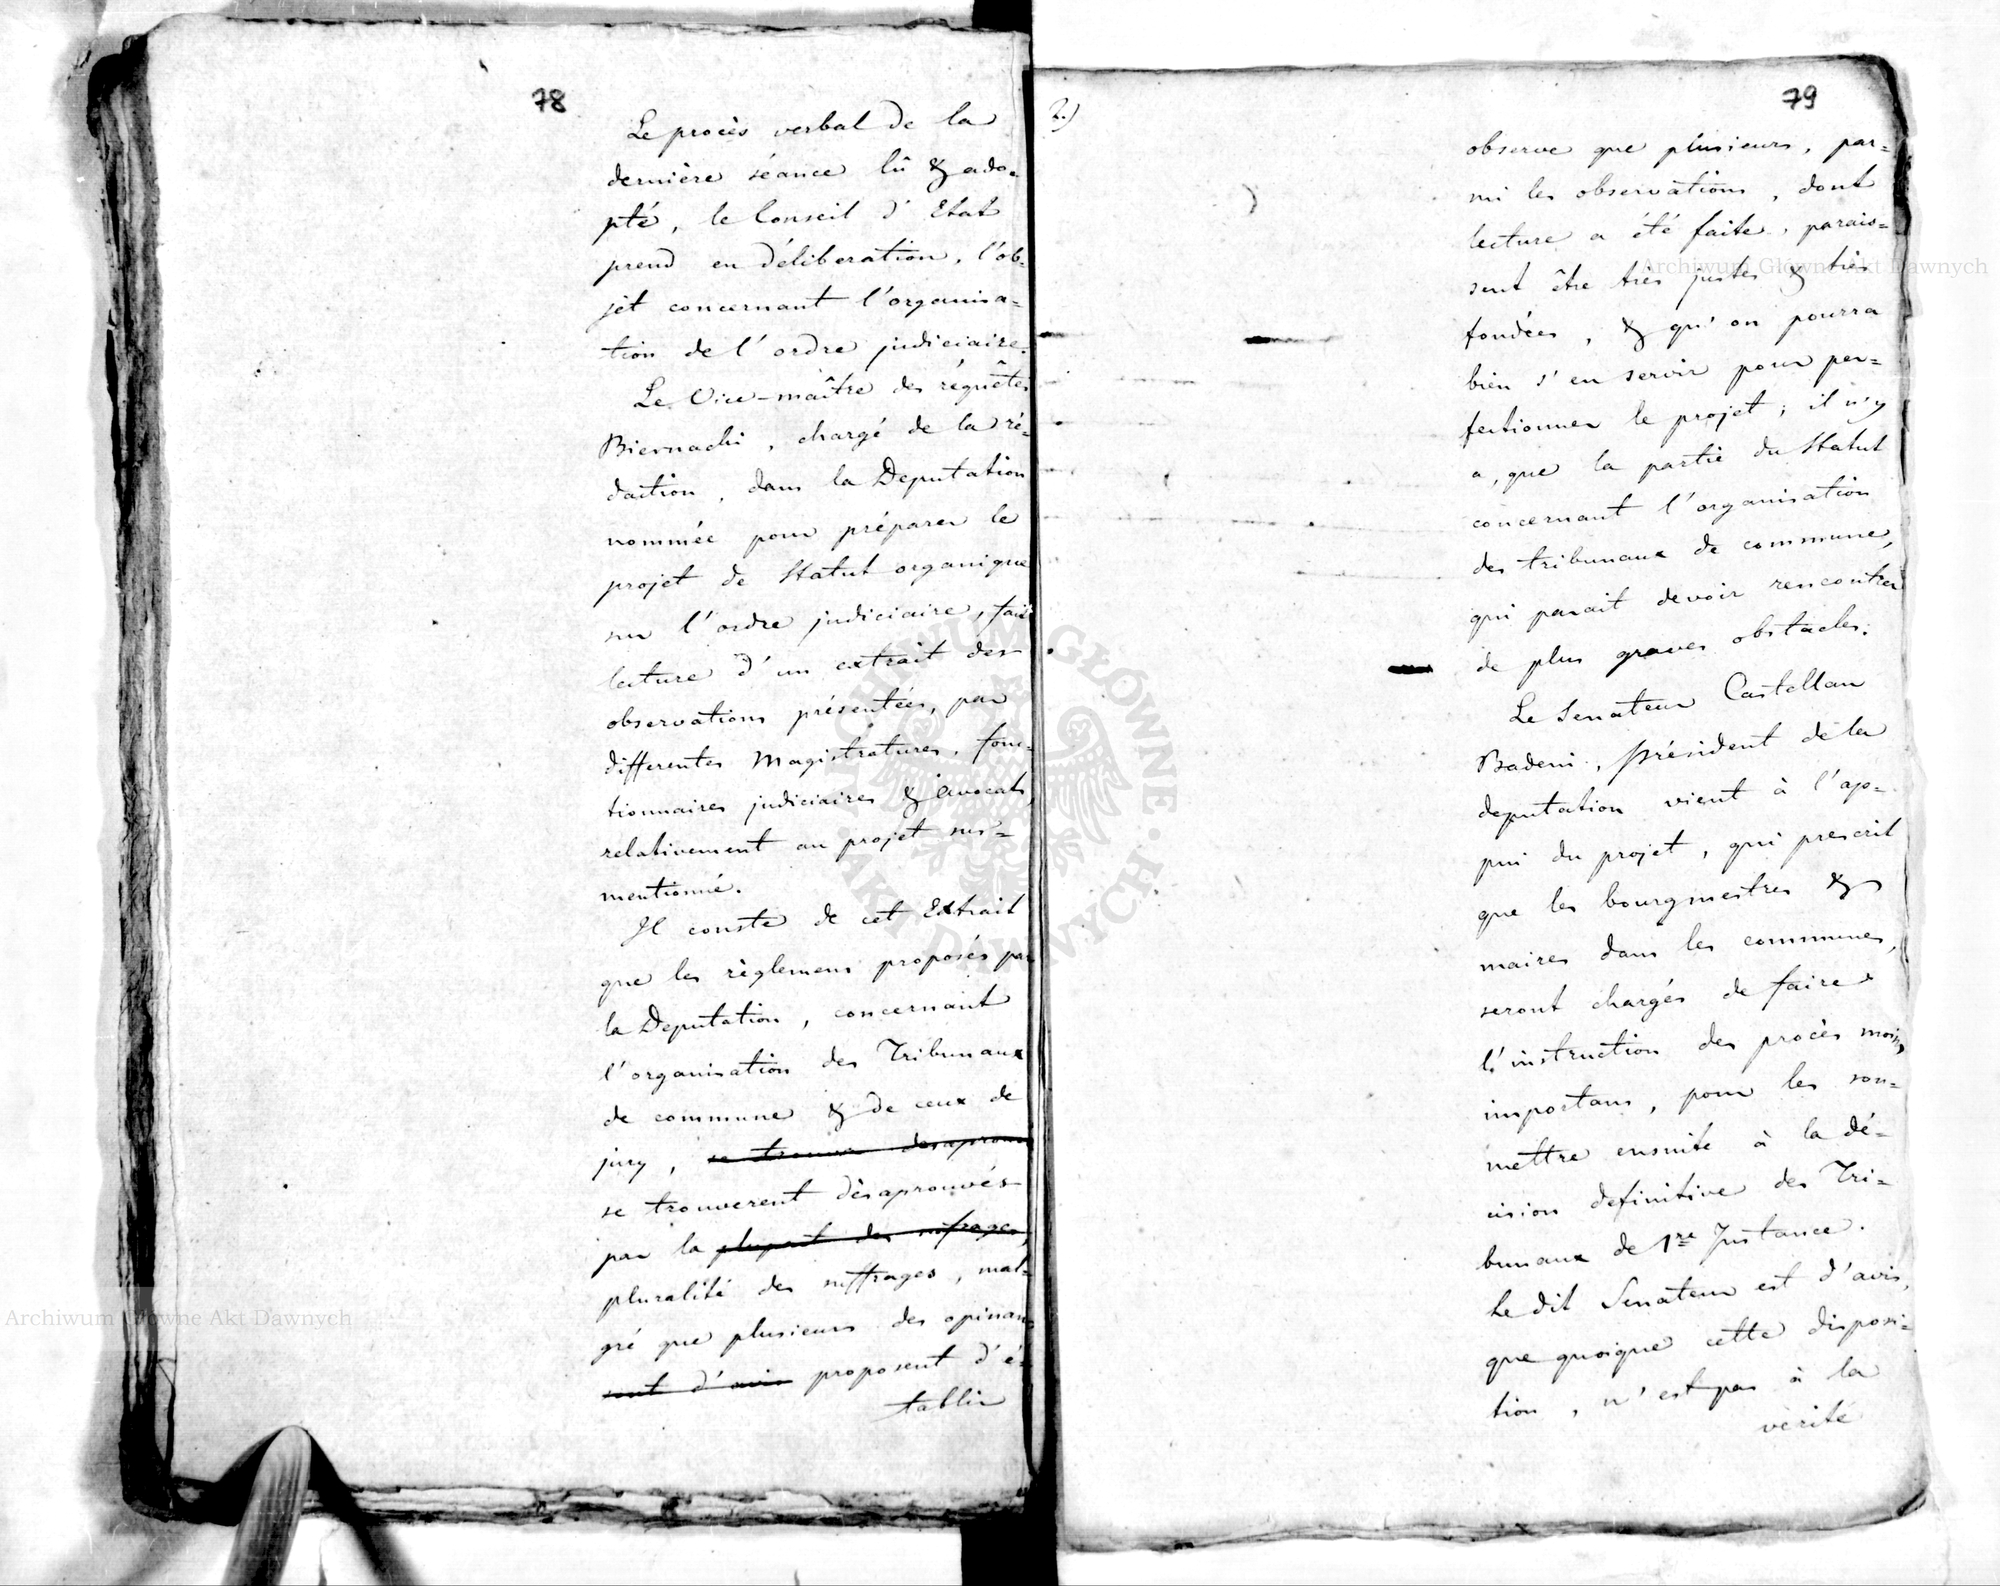 78
Le procès verbal de la
dernière séance lû & ado-
pté, le Conseil d'Etat
prend en déliberation, l'ob-
jet concernant l'organisa-
tion de l'ordre judiciaire.
Le Vice-maître des réquêtes
Biernacki, chargé de la ré-
daction, dans la Deputation
nommée pour préparer le
projet de Statut organique
sur l'ordre judiciaire, fait
lecture d'un extrait des
observations présentées, par
differentes Magistratures, fonc-
tionnaires judiciaires & avocats,
relativement au projet sus-
mentionné.
Il conste de cet Extrait
que les règlemens proposés par
la Deputation, concernant
l'organisation des Tribunaux
de commune & de ceux de
jury, se trouve desaprouv
se trouverent désaprouvés
par la plupart des sufrages,
pluralité des suffrages, mal-
gré que plusieurs des opinans
sont d'avis proposent d'é-
tablir
2.)
79
observe que plusieurs, par=
mi les observations, dont
lecture a été faite, parais=
sent être très justes & très
fondées, & qu'on pourra
bien s'en servir pour per=
fectionner le projet; il n'y
a, que la partie du Statut
concernant l'organisation
des tribunaux de commune,
qui parait devoir rencontrer
de plus graves obstacles.
Le Senateur Castellan
Badeni, Président de la
deputation vient à l'ap=
pui du projet, qui prescrit
que les bourgmestres &
maires dans les communes,
seront chargés de faire
l'instruction des procès moins
importans, pour les sou=
mettre ensuite à la dé=
cision definitive des Tri=
bunaux de 1re Instance.
Le dit Senateur est d'avis,
que quoique cette disposi=
tion, n'est pas à la
vérité
Archiwum Główne Akt Dawnych
Archiwum Główne Akt Dawnych
ARCHIWUM GŁÓWNE · AKT DAWNYCH ·